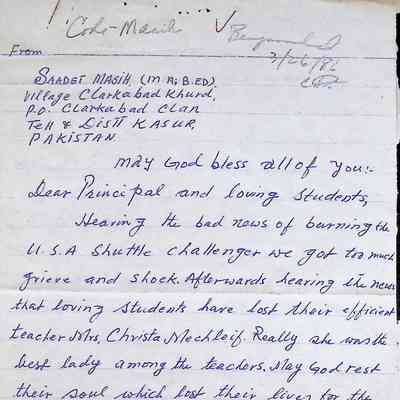 Code-Masih
3/26/86
From
SAADET MASIH, (M.A; B.ED),
Village Clarkabad Khurd,
P.O. Clarkabad Clan
Teh & Distt KASUR,
PAKISTAN.
MAY God bless all of you:-
Dear Principal and loving Students,
Hearing the bad news of burning the
U.S.A Shuttle challenger we got too much
grieve and shock. Afterwards hearing the news
that loving Students have lost their efficient
teacher Mrs, Christa Mechleif. Really she was the
best lady among the teachers. May God rest
their soul which lost their lives for the